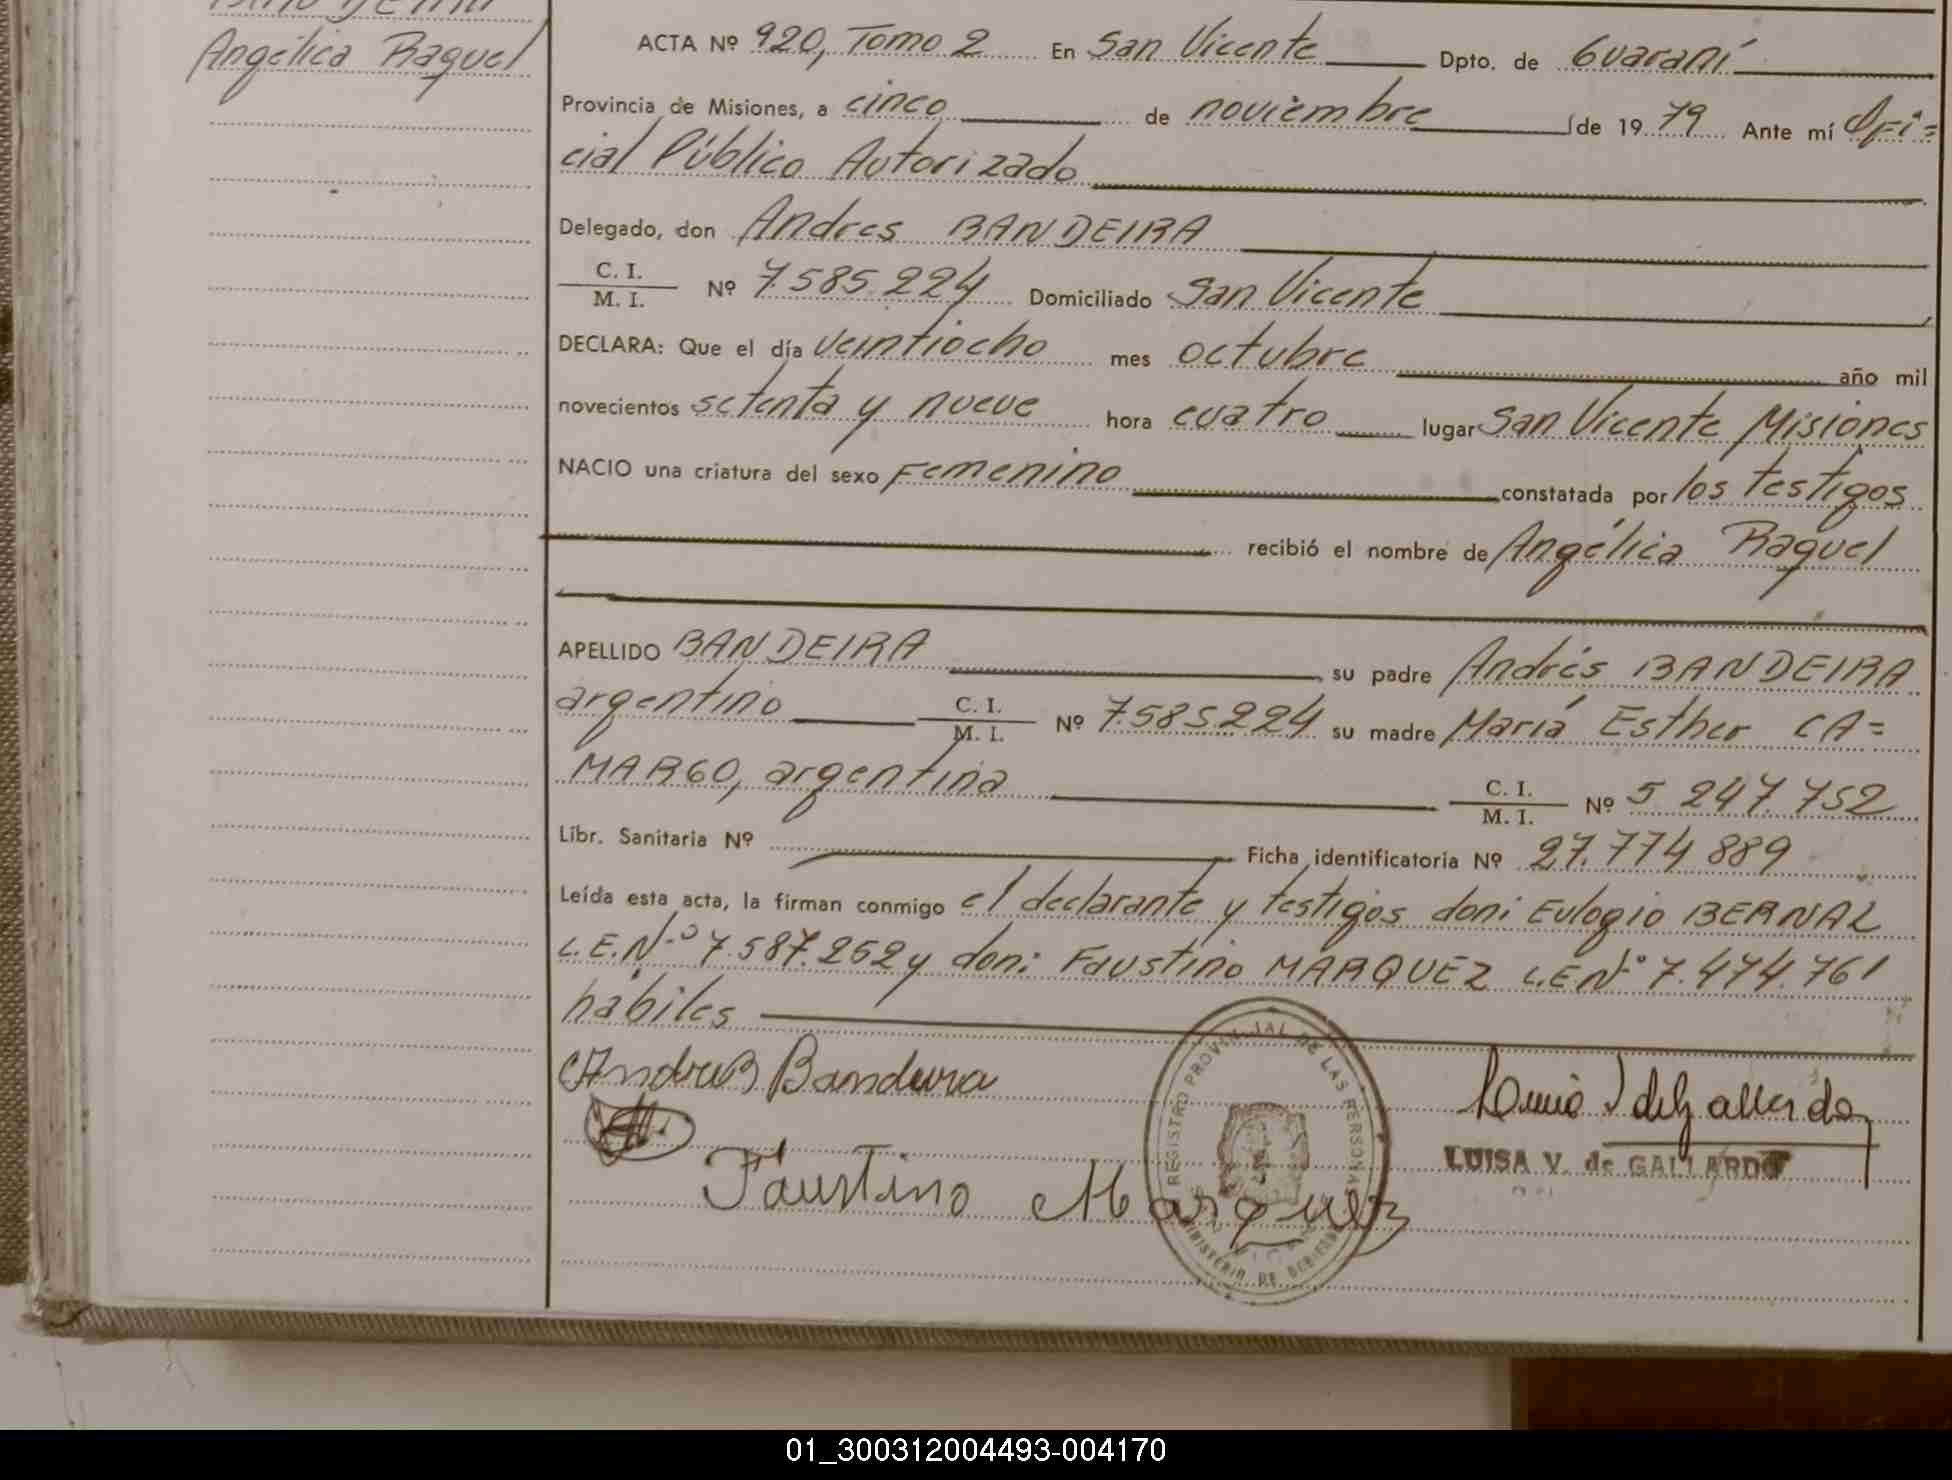 BANDEIRA
Angélica Raquel
ACTA Nº 920, Tomo 2 En San Vicente Dpto. de Guaraní
Provincia de Misiones, a cinco de noviembre de 1979 Ante mí Ofi=
cial Público Autorizado
Delegado, don Andres BANDEIRA
C. I.
M. I. Nº 7.585.224 Domiciliado San Vicente
DECLARA: Que el día veintiocho mes octubre año mil
novecientos setenta y nueve hora cuatro lugar San Vicente Misiones
NACIO una criatura del sexo Femenino constatada por los testigos
recibió el nombre de Angélica Raquel
APELLIDO BANDEIRA su padre Andrés BANDEIRA
argentino C. I.
M. I. Nº 7.585.224 su madre María Esther CA=
MARGO, argentina C. I.
M. I. Nº 5 247.752
Libr. Sanitaria Nº Ficha identificatoria Nº 27.774 889
Leída esta acta, la firman conmigo el declarante y testigos don: Eulogio BERNAL
L.E.Nº 7.587.252 y don: Faustino MARQUEZ L.E Nº 7.474.761
hábiles
Andres Bandeira
Faustino Marquez
REGISTRO PROVINCIAL DE LAS PERSONAS
MINISTERIO DE GOBIERNO
LUISA V. de GALLARDO
01_300312004493-004170